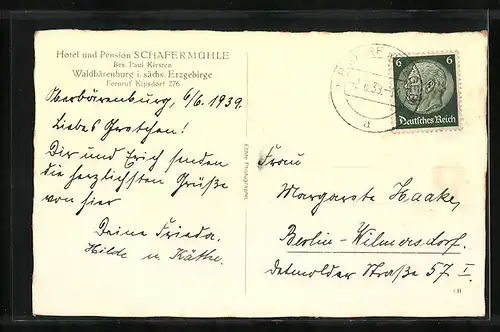 Hotel und Pension SCHÄFERMÜHLE
Bes. Paul Kirsten
Waldbärenburg i. sächs. Erzgebirge
Fernruf Kipsdorf 276
Oberbärenburg, 6/6. 1939.
Liebes Gretchen!
Dir und Erich senden
die herzlichsten Grüße
von hier
Deine Frieda.
Hilde u. Käthe.
Echte Photographie
6 6
Deutsches Reich
a
Frau
Margarete Haacke,
Berlin-Wilmersdorf.
Detmolder Straße 57 I.